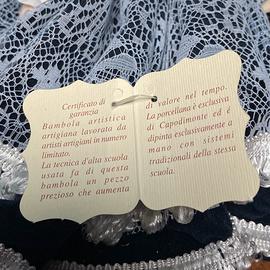 Certificato di
garanzia
Bambola artistica
artigiana lavorata da
artisti artigiani in numero
limitato.
La tecnica d'alta scuola
usata fa di questa
bambola un pezzo
prezioso che aumenta
di valore nel tempo.
La porcellana è esclusiva
di Capodimonte ed è
dipinta esclusivamente a
mano con sistemi
tradizionali della stessa
scuola.